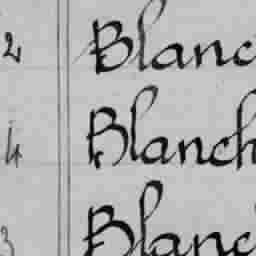 2 Blanc
4 Blanch
3 Blanc